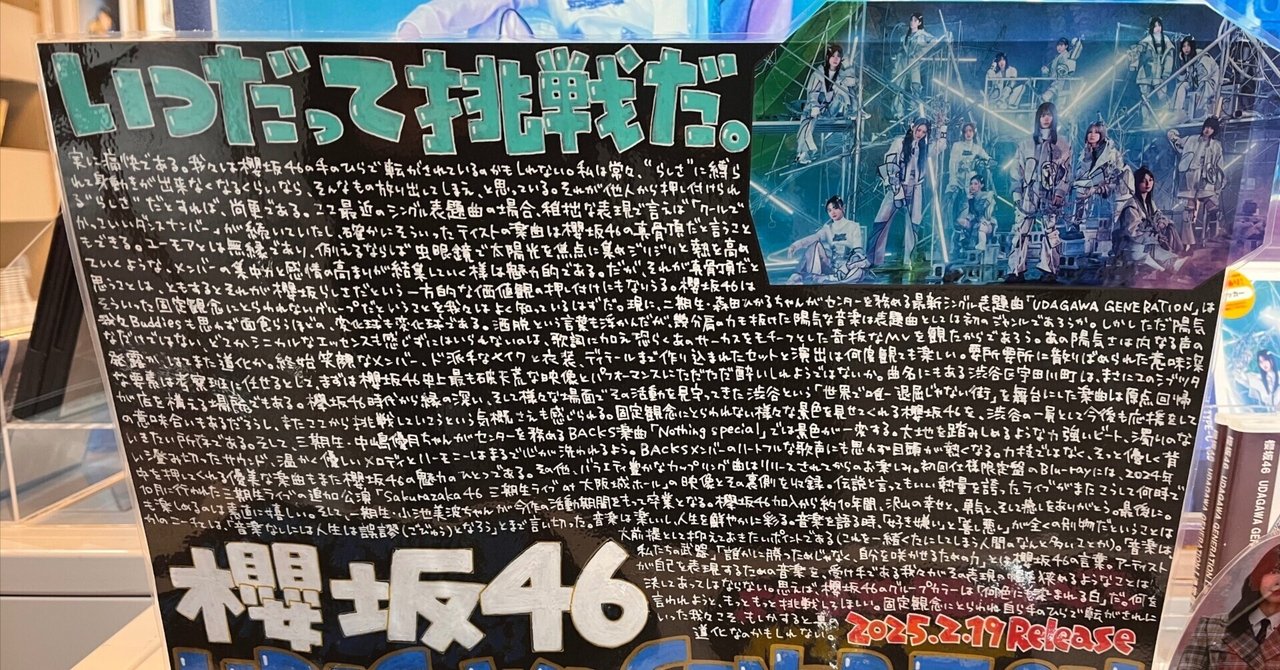 いつだって挑戦だ。
実に痛快である。我々は櫻坂46の手のひらで転がされているのかもしれない。私は常々、“らしさ”に縛ら
れて身動きが出来なくなるくらいなら、そんなもの放り出してしまえ、と思っている。それが他人から押し付けられ
る“らしさ”だとすれば、尚更である。ここ最近のシングル表題曲の場合、稚拙な表現で言えば「クールで
かっこいいダンスナンバー」が続いていたし、確かにそういったテイストの楽曲は櫻坂46の真骨頂だと言うこと
もできる。ユーモアとは無縁であり、例えるならば虫眼鏡で太陽光を焦点に集めジリジリと熱を高め
ていくような、メンバーの集中力と感情の高まりが結集していく様は魅力的である。だが、それが真骨頂だと
思うことは、ともするとそれが櫻坂らしさだという一方的な価値観の押し付けにもなりうる。櫻坂46は
そういった固定観念にとらわれないグループだということを我々はよく知っているはずだ。現に、二期生・森田ひかるちゃんがセンターを務める最新シングル表題曲「UDAGAWA GENERATION」は
我々Buddiesも思わず面食らうほどの、変化球も変化球である。洒脱という言葉も浮かんだが、幾分肩の力も抜けた陽気な音楽は表題曲としては初のジャンルであろうか。しかしただ陽気
なだけではない、どこかシニカルなエッセンスも感じずにはいられないのは、歌詞に加え恐らくあのサーカスをモチーフとした奇抜なMVを観たからであろう。あの陽気さは内なる声の
発露か、はてまた道化か。終始笑顔なメンバー、ド派手なメイクと衣装、ディテールまで作り込まれたセットと演出は何度観ても楽しい。要所要所に散りばめられた意味深
な要素は考察班に任せるとして、まずは櫻坂46史上最も破天荒な映像とパフォーマンスにただただ酔いしれようではないか。曲名にもある渋谷区宇田川町は、まさにココシブツタ
が店を構える場所でもある。欅坂46時代から縁の深い、そして様々な場面でその活動を見守ってきた渋谷という「世界で唯一退屈じゃない街」を舞台にした楽曲は原点回帰
の意味合いもあるだろうし、またここから挑戦していこうという気概さえも感じられる。固定観念にとらわれない様々な景色を見せてくれる櫻坂46を、渋谷の一員として今後も応援をして
いきたい所存である。そして、三期生・中嶋優月ちゃんがセンターを務めるBACKS楽曲「Nothing special」では景色が一変する。大地を踏みしめるような力強いビート、濁りのな
い澄み切ったサウンド、温かく優しいメロディとハーモニーはまるで心が洗われるよう。BACKSメンバーのハートフルな歌声にも思わず目頭が熱くなる。力技ではなく、そっと優しく背
中を押してくれる優美な楽曲もまた櫻坂46の魅力のひとつである。その他、バラエティ豊かなカップリング曲はリリースされてからのお楽しみ。初回仕様限定盤のBlu-rayには、2024年
10月に行われた三期生ライブの追加公演「Sakurazaka46 三期生ライブ at 大阪城ホール」の映像とその裏側を収録。伝説と言ってもいい熱量を誇ったライブがまたこうして何時で
も楽しめるのは素直に嬉しい。そして、一期生・小池美波ちゃんが今作の活動期間をもって卒業となる。欅坂46加入から約10年間、沢山の幸せと、勇気と、そして癒しをありがとう。最後に。
かのニーチェは、「音楽なしには人生は誤謬（ごびゅう）となろう」とまで言い切った。音楽は楽しいし、人生を鮮やかに彩る。音楽を語る時、「好き嫌い」と「善し悪し」が全くの別物だということは
大前提として抑えておきたいポイントである（これを一緒くたにしてしまう人間のなんと多いことか）。「音楽は、
私たちの武器」「誰かに勝つためじゃなく、自分を咲かせるための力」とは櫻坂46の言葉。アーティスト
が自己を表現するための音楽を、受け手である我々がその表現の幅を狭めるようなことは
決してあってはならない。思えば、櫻坂46のグループカラーは「何色にも染まれる白」だ。何を
言われようと、もっともっと挑戦してほしい。固定観念にとらわれ自ら手のひらで転がされに
いった我々こそ、もしかすると真の
道化なのかもしれない。
2025.2.19 Release
櫻坂46